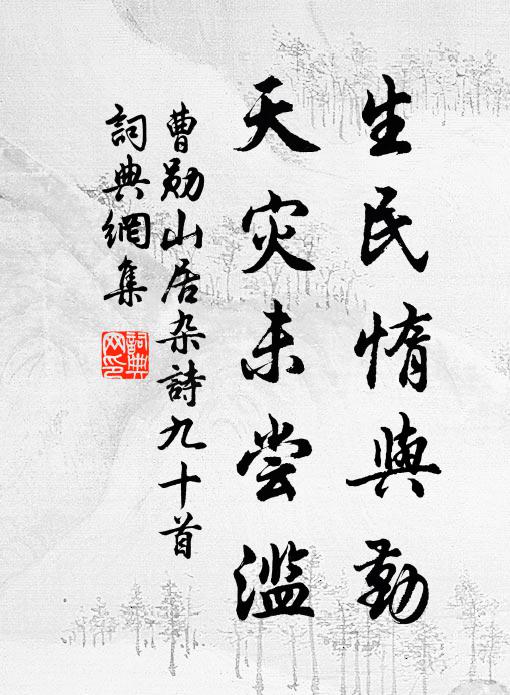 生民惰與勤
天灾未尝滥
曹勋山居杂詩九十首
詞典網集
詞典網印